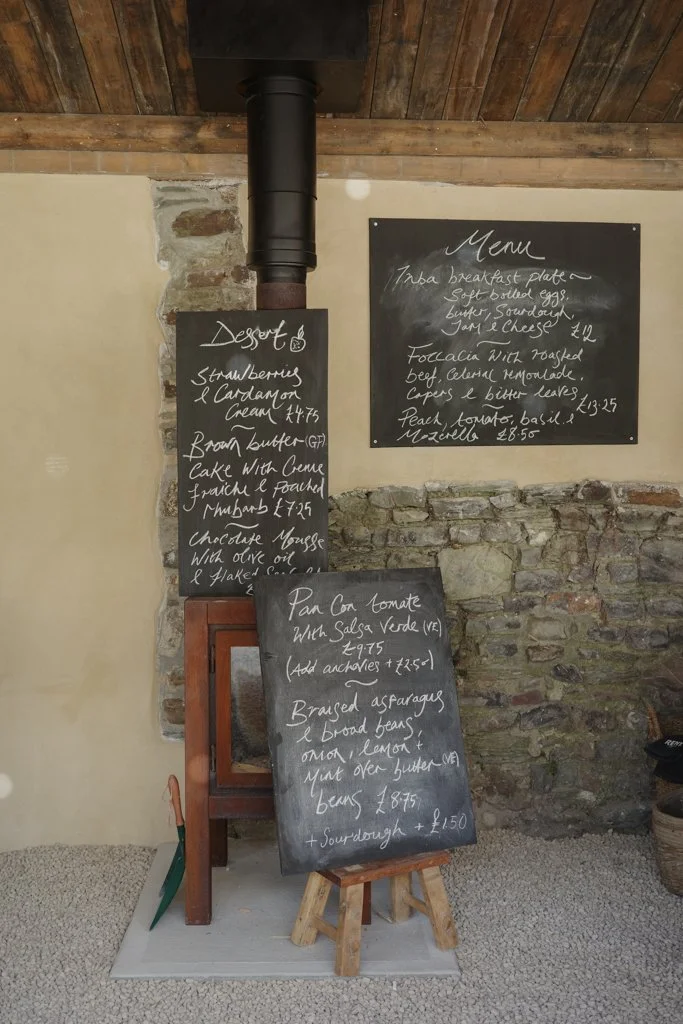 Menu
Inba breakfast plate ~
Soft boiled eggs,
butter, Sourdough,
Jam & Cheese £12
~
Foccacia with roasted
beef, Celeriac remoulade,
Capers & bitter leaves
~ £13.25
Peach, tomato, basil &
Mozerella £8.50
Dessert
Strawberries
& Cardamon
Cream £4.75
~
Brown butter (GF)
Cake With Creme
fraiche & Poached
rhubarb £7.25
~
Chocolate Mousse
With olive oil
& flaked
Pan Con tomate
With Salsa Verde (VE)
£9.75
(Add anchovies + £2.50)
~
Braised asparagus
& broad beans,
onion, lemon +
Mint over butter (VE)
beans £8.75
+ Sourdough + £1.50